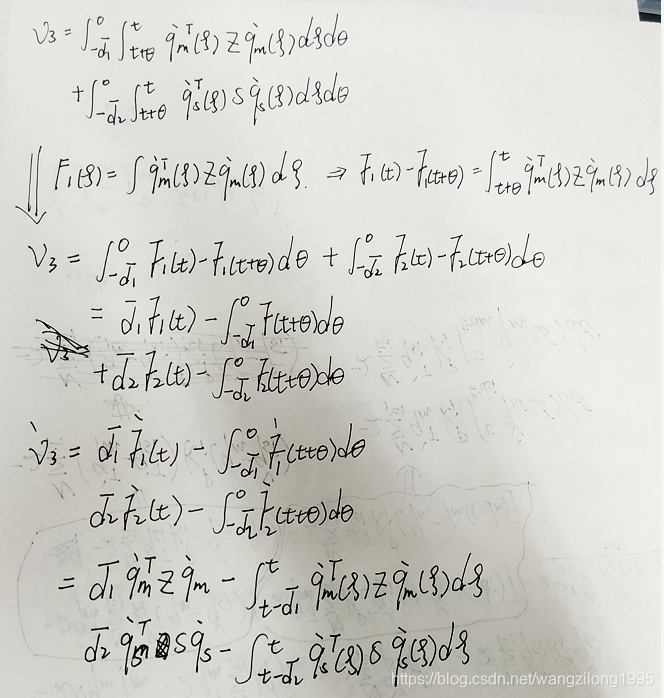 V₃ = ∫_{-d̄₁}^{0} ∫_{t+θ}^{t} q̇ₘᵀ(ξ) Z q̇ₘ(ξ) dξdθ
+ ∫_{-d̄₂}^{0} ∫_{t+θ}^{t} q̇ₛᵀ(ξ) S q̇ₛ(ξ) dξdθ
⇓ F₁(ξ) = ∫ q̇ₘᵀ(ξ) Z q̇ₘ(ξ) dξ. ⇒ F₁(t) - F₁(t+θ) = ∫_{t+θ}^{t} q̇ₘᵀ(ξ) Z q̇ₘ(ξ) dξ
V₃ = ∫_{-d̄₁}^{0} F₁(t) - F₁(t+θ) dθ + ∫_{-d̄₂}^{0} F₂(t) - F₂(t+θ) dθ
= d̄₁ F₁(t) - ∫_{-d̄₁}^{0} F(t+θ) dθ
+ d̄₂ F₂(t) - ∫_{-d̄₂}^{0} F₂(t+θ) dθ
V̇₃ = d̄₁ Ḟ₁(t) - ∫_{-d̄₁}^{0} Ḟ₁(t+θ) dθ
d̄₂ Ḟ₂(t) - ∫_{-d̄₂}^{0} Ḟ₂(t+θ) dθ
= d̄₁ q̇ₘᵀ Z q̇ₘ - ∫_{t-d̄₁}^{t} q̇ₘᵀ(ξ) Z q̇ₘ(ξ) dξ
d̄₂ q̇ₛᵀ S q̇ₛ - ∫_{t-d̄₂}^{t} q̇ₛᵀ(ξ) S q̇ₛ(ξ) dξ
https://blog.csdn.net/wangzilong1995